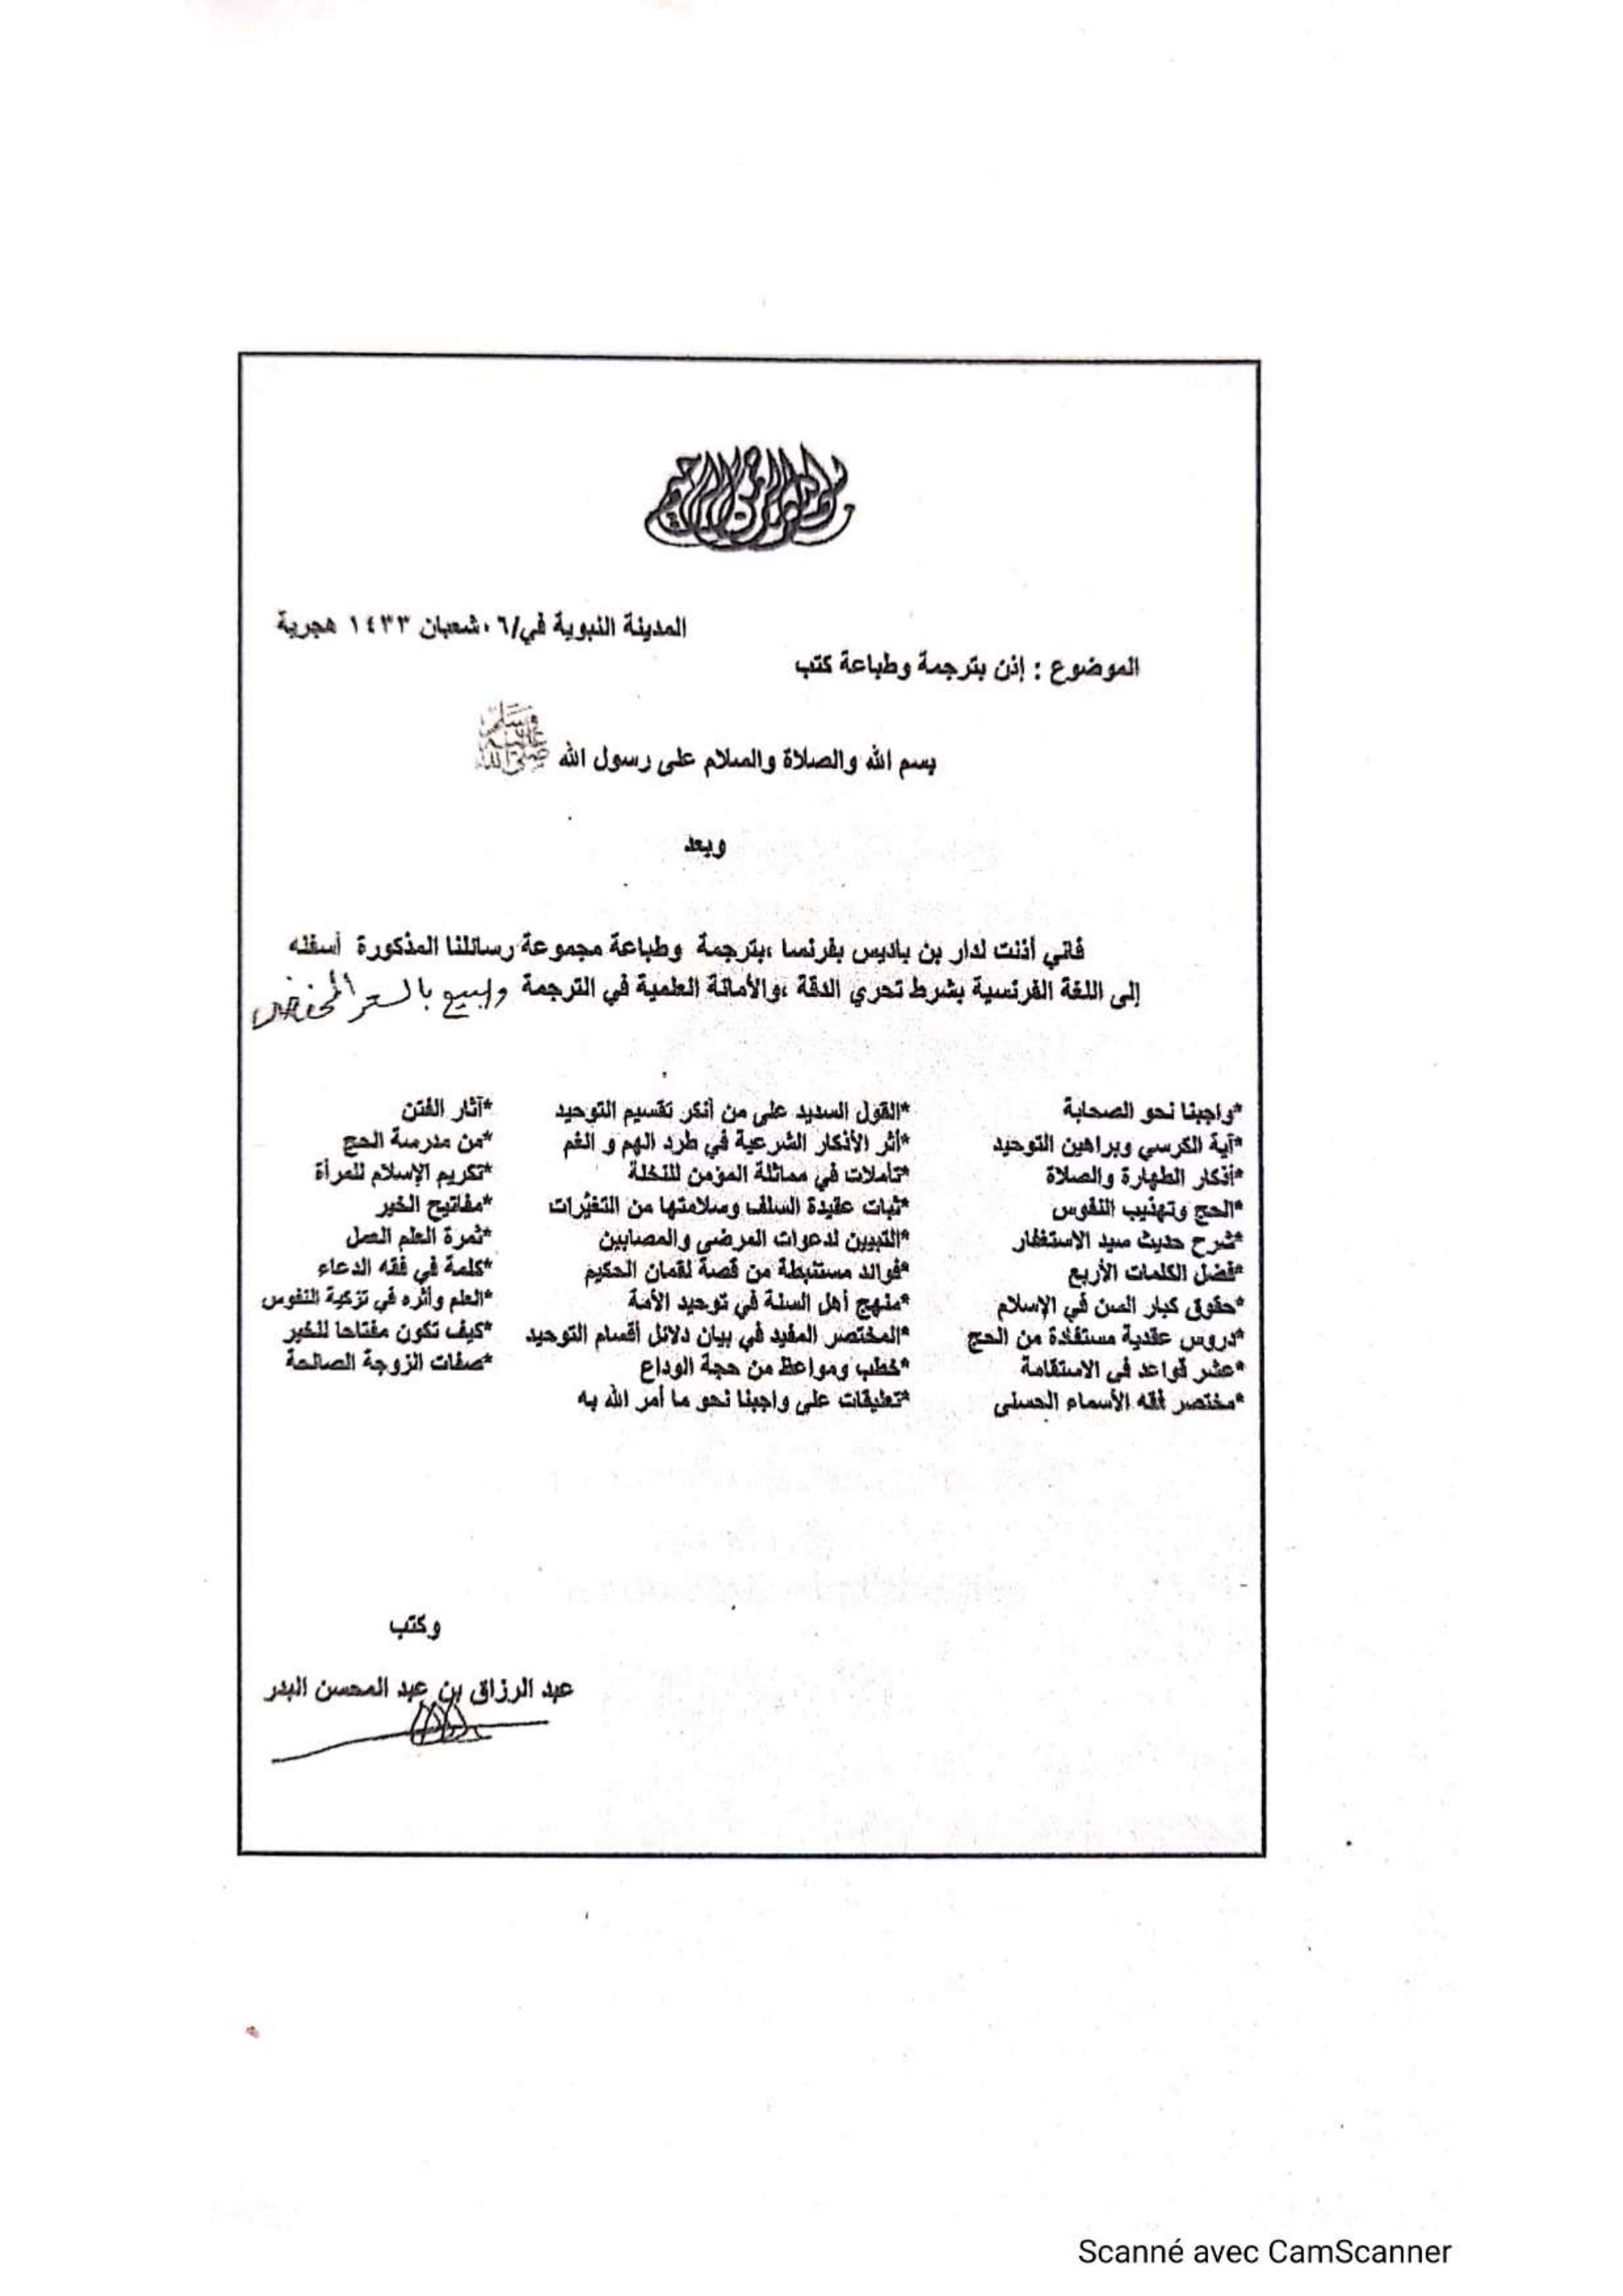 بسم الله الرحمن الرحيم
المدينة النبوية في/٠٦شعبان ١٤٣٣ هجرية
الموضوع : إذن بترجمة وطباعة كتب
بسم الله والصلاة والسلام على رسول الله ﷺ
وبعد
فاني أذنت لدار بن باديس بفرنسا ،بترجمة وطباعة مجموعة رسائلنا المذكورة أسفله
إلى اللغة الفرنسية بشرط تحري الدقة ،والأمانة العلمية في الترجمة والبيع بالسعر المخفض
*واجبنا نحو الصحابة
*آية الكرسي وبراهين التوحيد
*أذكار الطهارة والصلاة
*الحج وتهذيب النفوس
*شرح حديث سيد الاستغفار
*فضل الكلمات الأربع
*حقوق كبار السن في الإسلام
*دروس عقدية مستفادة من الحج
*عشر قواعد في الاستقامة
*مختصر فقه الأسماء الحسنى
*القول السديد على من أنكر تقسيم التوحيد
*أثر الأذكار الشرعية في طرد الهم و الغم
*تأملات في مماثلة المؤمن للنخلة
*ثبات عقيدة السلف وسلامتها من التغيرات
*التبيين لدعوات المرضى والمصابين
*فوائد مستنبطة من قصة لقمان الحكيم
*منهج أهل السنة في توحيد الأمة
*المختصر المفيد في بيان دلائل أقسام التوحيد
*خطب ومواعظ من حجة الوداع
*تعليقات على واجبنا نحو ما أمر الله به
*آثار الفتن
*من مدرسة الحج
*تكريم الإسلام للمرأة
*مفاتيح الخير
*ثمرة العلم العمل
*كلمة في فقه الدعاء
*العلم وأثره في تزكية النفوس
*كيف تكون مفتاحا للخير
*صفات الزوجة الصالحة
وكتب
عبد الرزاق بن عبد المحسن البدر
Scanné avec CamScanner